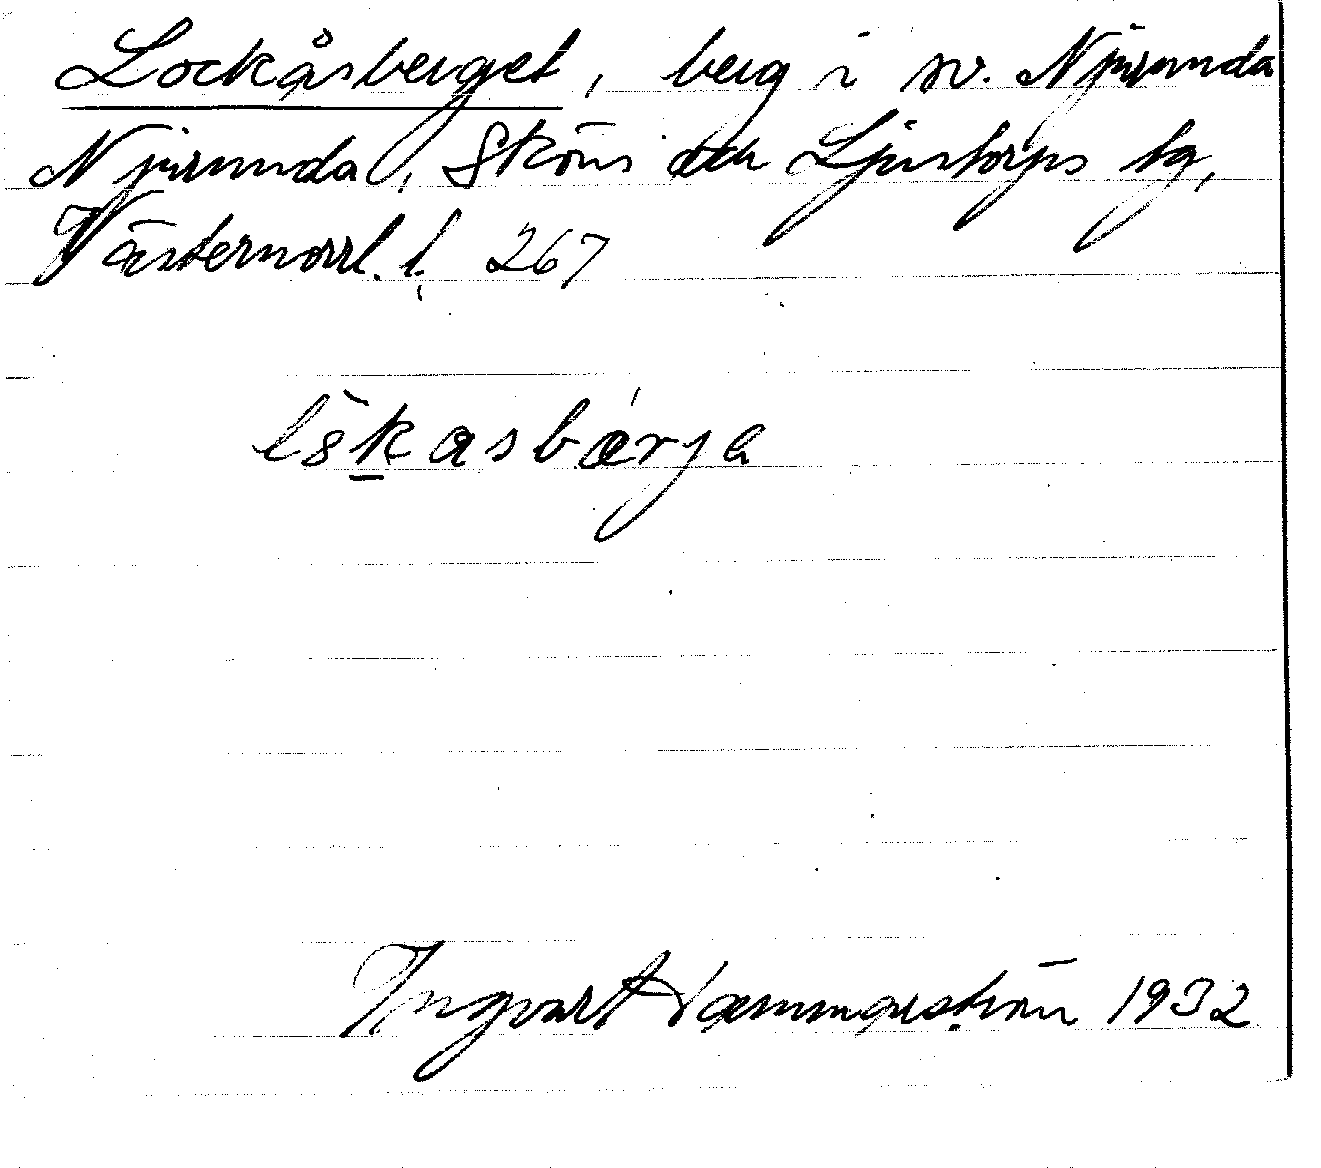 Lockåsberget, berg i sv. Njurunda
Njurunda, Sköns och Ljustorps tg,
Västernorrl. l. 267
lökasbárja
Ingvart Hammarström 1932